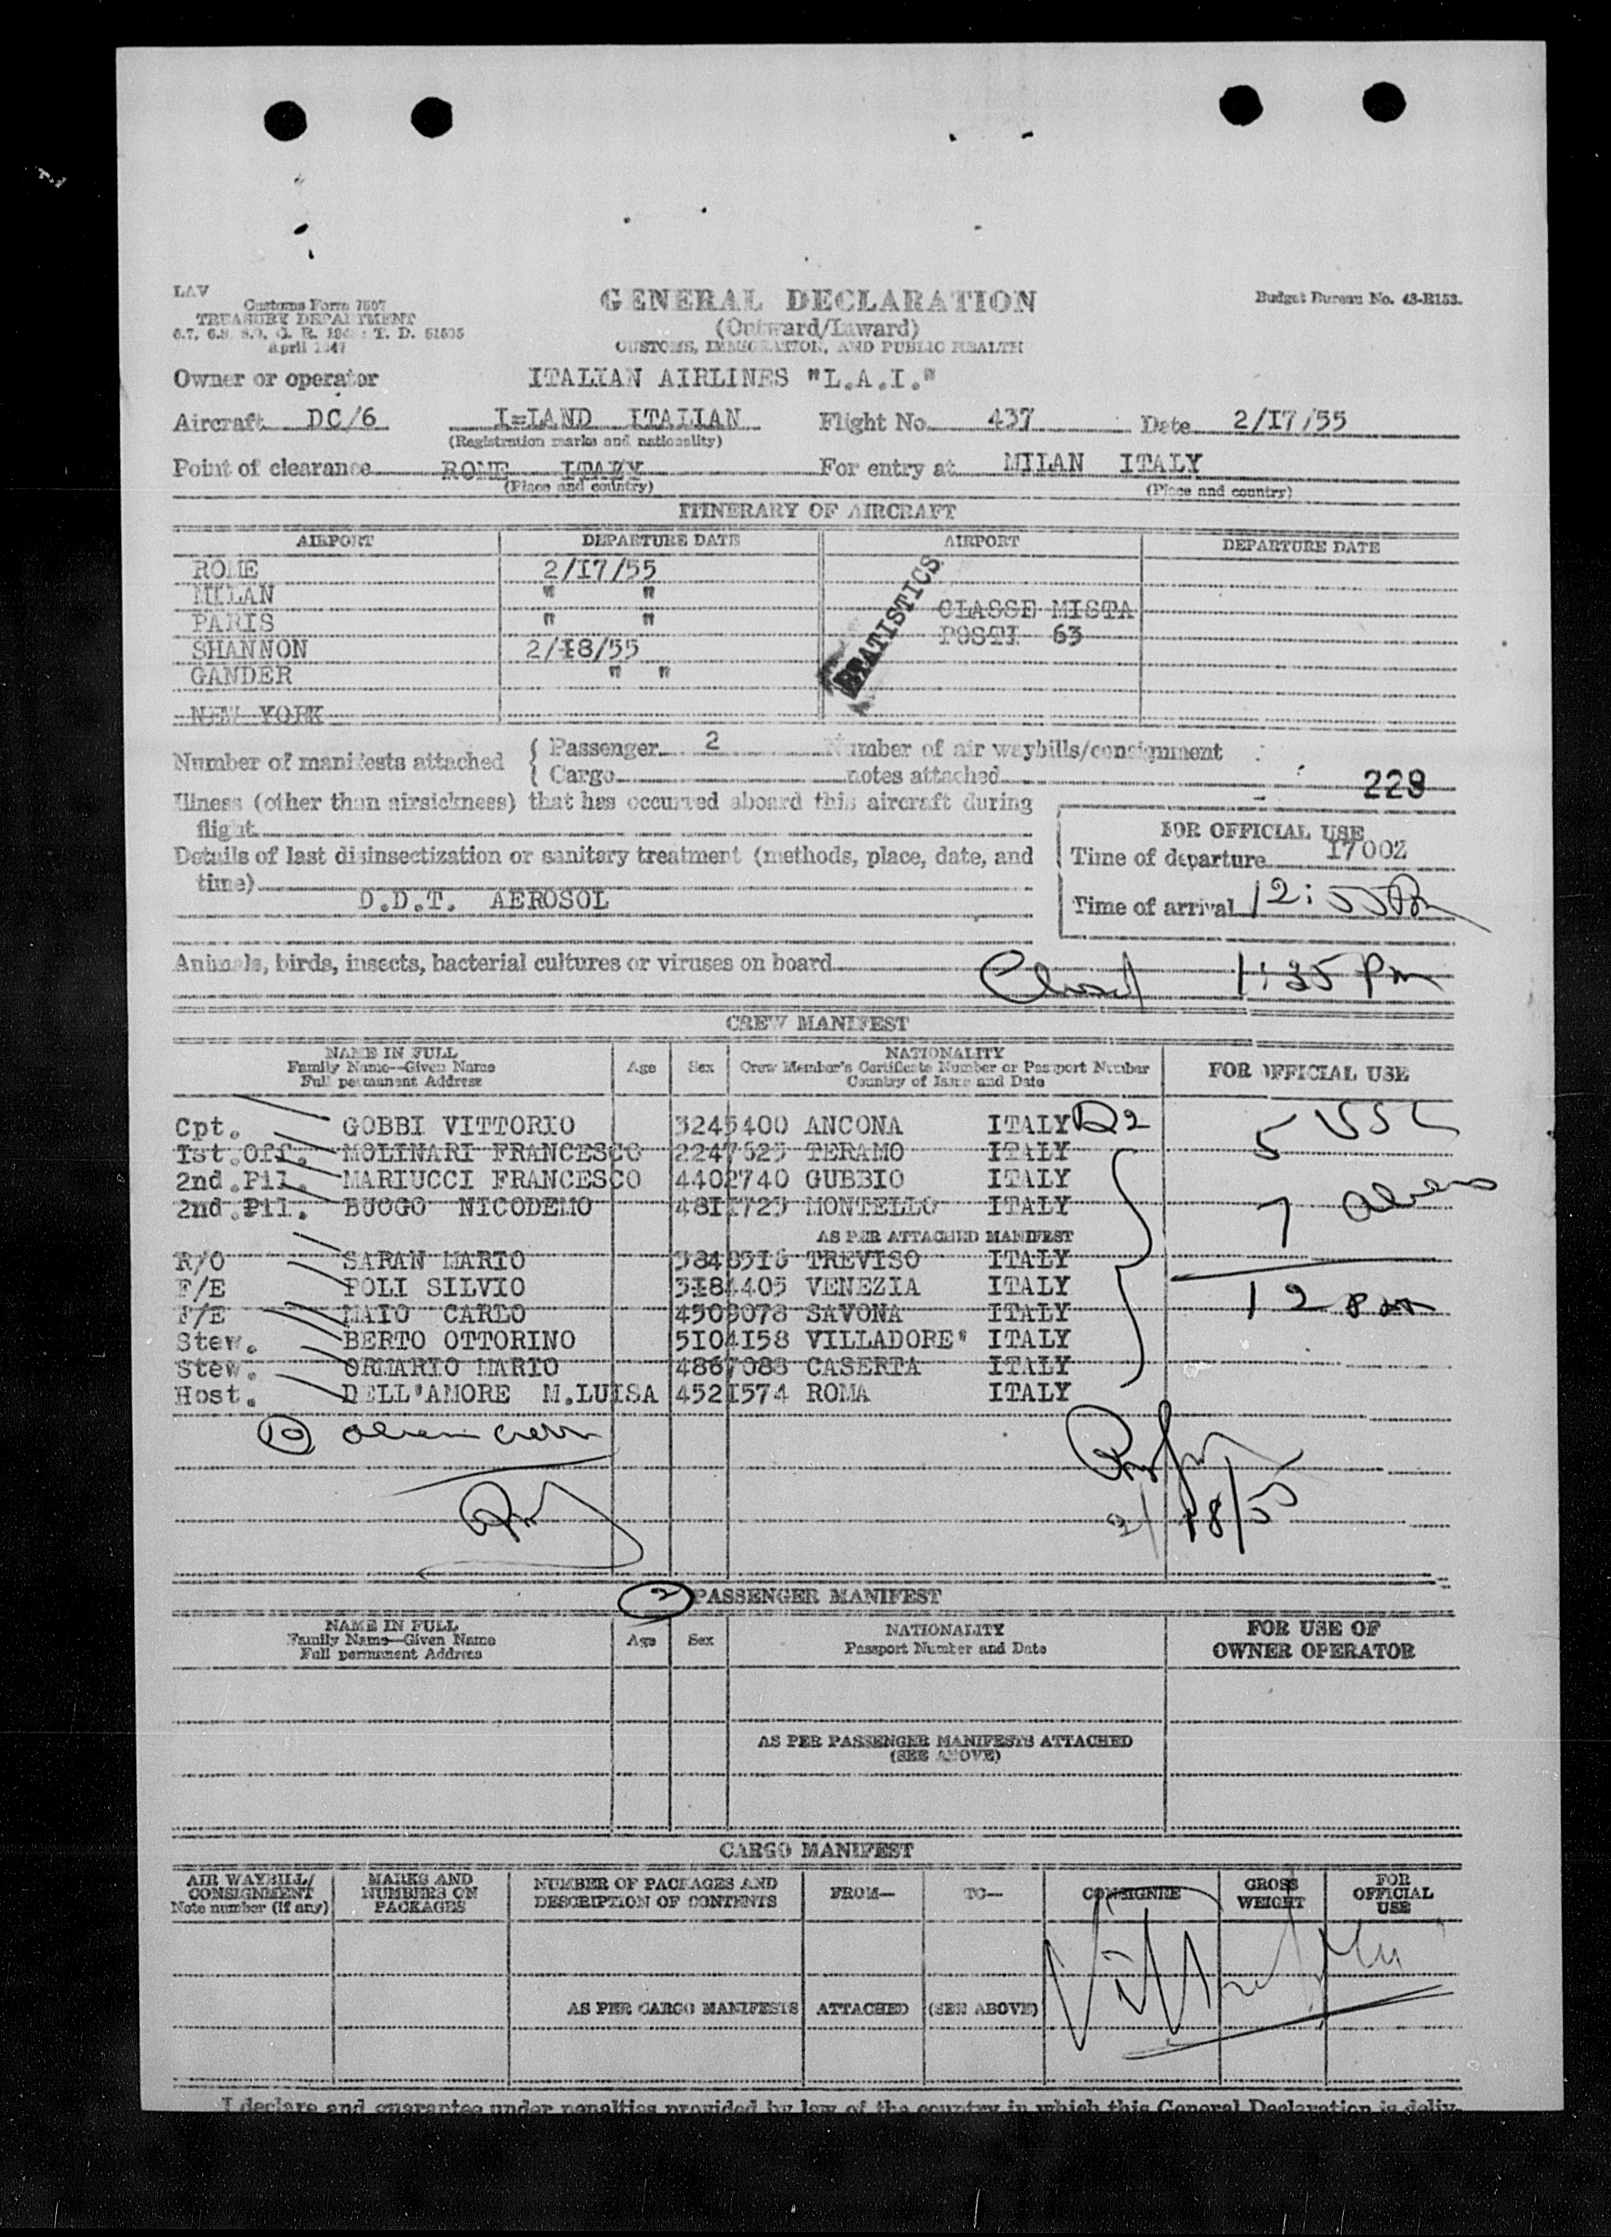 LAV
Customs Form 7507
TREASURY DEPARTMENT
April 1947
Budget Bureau No. 43-R153.
GENERAL DECLARATION
(Outward/Inward)
CUSTOMS, IMMIGRATION, AND PUBLIC HEALTH
Owner or operator ITALIAN AIRLINES "L.A.I."
Aircraft DC/6 I=LAND ITALIAN Flight No. 437 Date 2/I7/55
(Registration marks and nationality)
Point of clearance ROME ITALY For entry at MILAN ITALY
(Place and country) (Place and country)
ITINERARY OF AIRCRAFT
AIRPORT DEPARTURE DATE AIRPORT DEPARTURE DATE
ROME 2/I7/55
MILAN " "
CLASSE MISTA
PARIS " "
POSTI 63
SHANNON 2/I8/55
GANDER " "
STATISTICS
NEW YORK
Number of manifests attached { Passenger 2 Number of air waybills/consignment
{ Cargo notes attached
229
Illness (other than airsickness) that has occurred aboard this aircraft during
flight
FOR OFFICIAL USE
Time of departure I700Z
Details of last disinsectization or sanitary treatment (methods, place, date, and
time)
D.D.T. AEROSOL
Time of arrival 12:55 Pm
Animals, birds, insects, bacterial cultures or viruses on board
Closed 1:35 Pm
CREW MANIFEST
NAME IN FULL
Family Name—Given Name
Full permanent Address
Age Sex
NATIONALITY
Crew Member's Certificate Number or Passport Number
Country of Issue and Date
FOR OFFICIAL USE
Cpt. GOBBI VITTORIO 3245400 ANCONA ITALY D2
5 USC
Ist.Off. MOLINARI FRANCESCO 2247525 TERAMO ITALY
2nd.Pil. MARIUCCI FRANCESCO 4402740 GUBBIO ITALY
2nd.Pil. BUOGO NICODEMO 48II725 MONTELLO ITALY
7 aliens
AS PER ATTACHED MANIFEST
R/O SARAN MARIO 3848516 TREVISO ITALY
F/E POLI SILVIO 3I84405 VENEZIA ITALY
F/E MAIO CARLO 4508078 SAVONA ITALY
12 Pax
Stew. BERTO OTTORINO 5I04I58 VILLADORE" ITALY
Stew. ORMARIO MARIO 4867088 CASERTA ITALY
Host. DELL'AMORE M.LUISA 452I574 ROMA ITALY
10 alien crew
2/18/55
2 PASSENGER MANIFEST
NAME IN FULL
Family Name—Given Name
Full permanent Address
Age Sex
NATIONALITY
Passport Number and Date
FOR USE OF
OWNER OPERATOR
AS PER PASSENGER MANIFESTS ATTACHED
(SEE ABOVE)
CARGO MANIFEST
AIR WAYBILL/
CONSIGNMENT
Note number (if any)
MARKS AND
NUMBERS ON
PACKAGES
NUMBER OF PACKAGES AND
DESCRIPTION OF CONTENTS
FROM— TO— CONSIGNEE
GROSS
WEIGHT
FOR
OFFICIAL
USE
AS PER CARGO MANIFESTS ATTACHED (SEE ABOVE)
I declare and guarantee under penalties provided by law of the country in which this General Declaration is deliv-